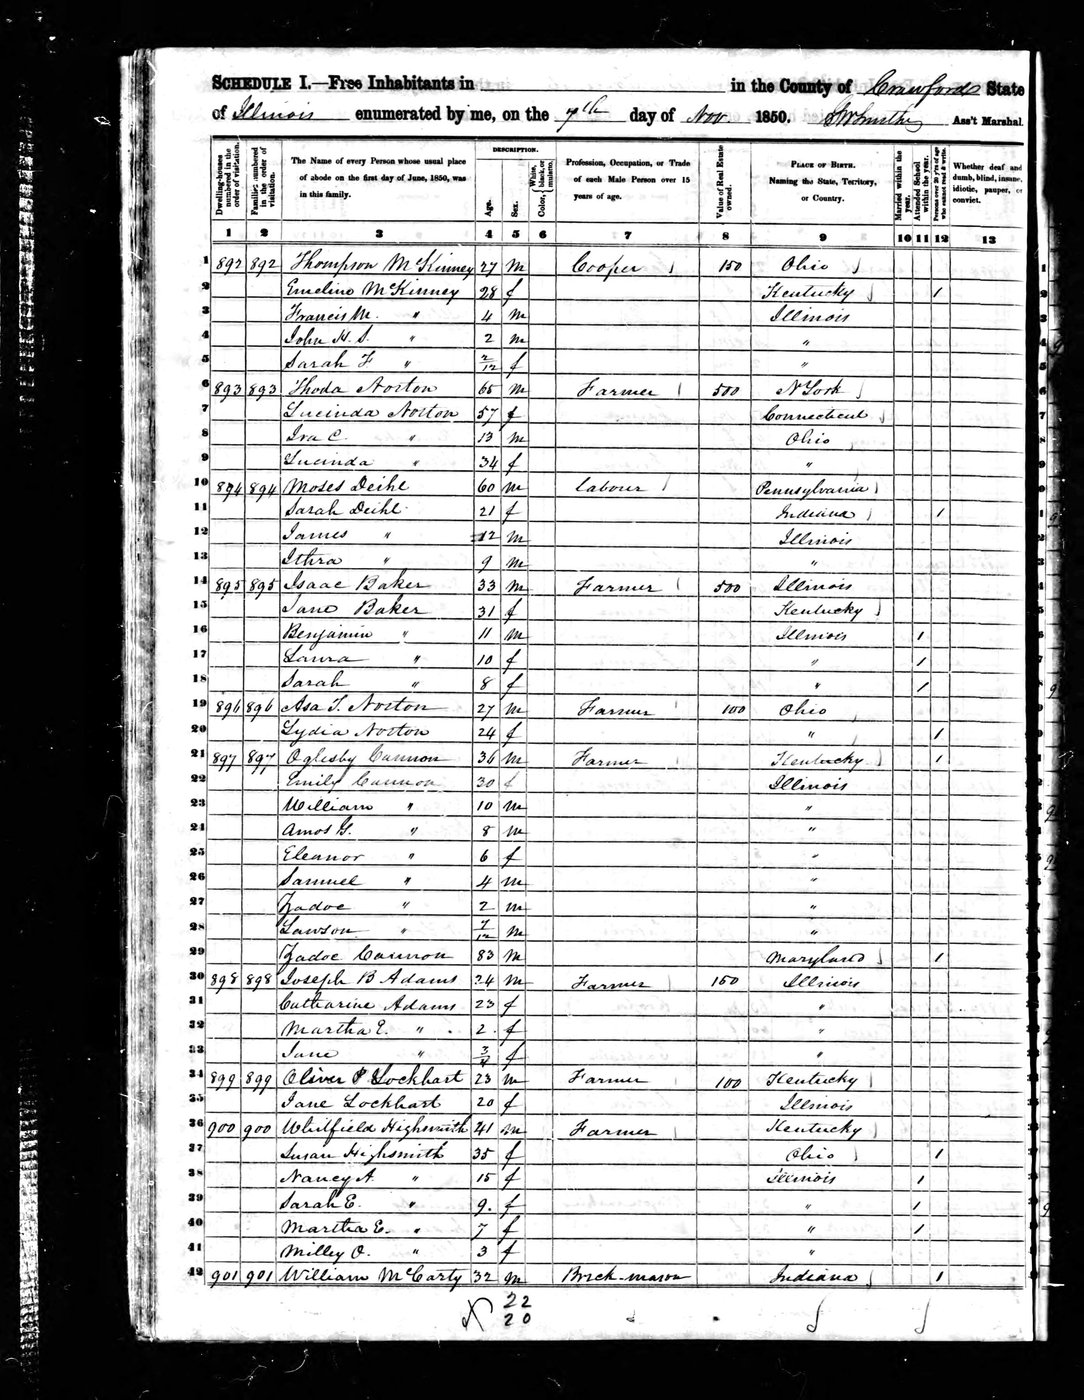 SCHEDULE I.—Free Inhabitants in in the County of Crawford State
of Illinois enumerated by me, on the 7th day of Nov. 1850. Ass't Marshal
Dwelling-houses numbered in the order of visitation. Families numbered in the order of visitation. The Name of every Person whose usual place of abode on the first day of June, 1850, was in this family. DESCRIPTION. Age. Sex. Color, White, black, or mulatto. Profession, Occupation, or Trade of each Male Person over 15 years of age. Value of Real Estate owned. PLACE OF BIRTH. Naming the State, Territory, or Country. Married within the year. Attended School within the year. Persons over 20 y'rs of age who cannot read & write. Whether deaf and dumb, blind, insane, idiotic, pauper, or convict.
1 2 3 4 5 6 7 8 9 10 11 12 13
1 892 892 Thompson McKinney 27 m Cooper 150 Ohio
2 Emeline McKinney 28 f Kentucky 1
3 Francis M. " 4 m Illinois
4 John H. S. " 2 m "
5 Sarah F " 2/12 f "
6 893 893 Norton 65 m Farmer 500 N York
7 Lucinda Norton 57 f Connecticut
8 Ira C. " 13 m Ohio
9 Lucinda " 34 f "
10 894 894 Moses Deihl 60 m labour Pennsylvania
11 Sarah Deihl 21 f Indiana 1
12 James " 12 m Illinois
13 Ithra " 9 m "
14 895 895 Isaac Baker 33 m Farmer 500 Illinois
15 Jane Baker 31 f Kentucky
16 Benjamin " 11 m Illinois 1
17 Laura " 10 f " 1
18 Sarah " 8 f " 1
19 896 896 Asa T. Norton 27 m Farmer 100 Ohio
20 Lydia Norton 24 f " 1
21 897 897 Oglesby Cannon 36 m Farmer Kentucky 1
22 Emily Cannon 30 f Illinois
23 William " 10 m "
24 Amos G. " 8 m "
25 Eleanor " 6 f "
26 Samuel " 4 m "
27 Zadoc " 2 m "
28 Lawson " 7/12 m "
29 Zadoc Cannon 83 m Maryland 1
30 898 898 Joseph B Adams 24 m Farmer 150 Illinois
31 Catharine Adams 23 f "
32 Martha E. " 2 f "
33 Jane " f "
34 899 899 Oliver P Lockhart 23 m Farmer 100 Kentucky
35 Jane Lockhart 20 f Illinois
36 900 900 Whitfield Highsmith 41 m Farmer Kentucky
37 Susan Highsmith 35 f Ohio 1
38 Nancy A. " 15 f Illinois 1
39 Sarah E. " 9 f " 1
40 Martha E. " 7 f " 1
41 Milley O. " 3 f "
42 901 901 William McCarty 32 m Brick-mason Indiana 1
22
20